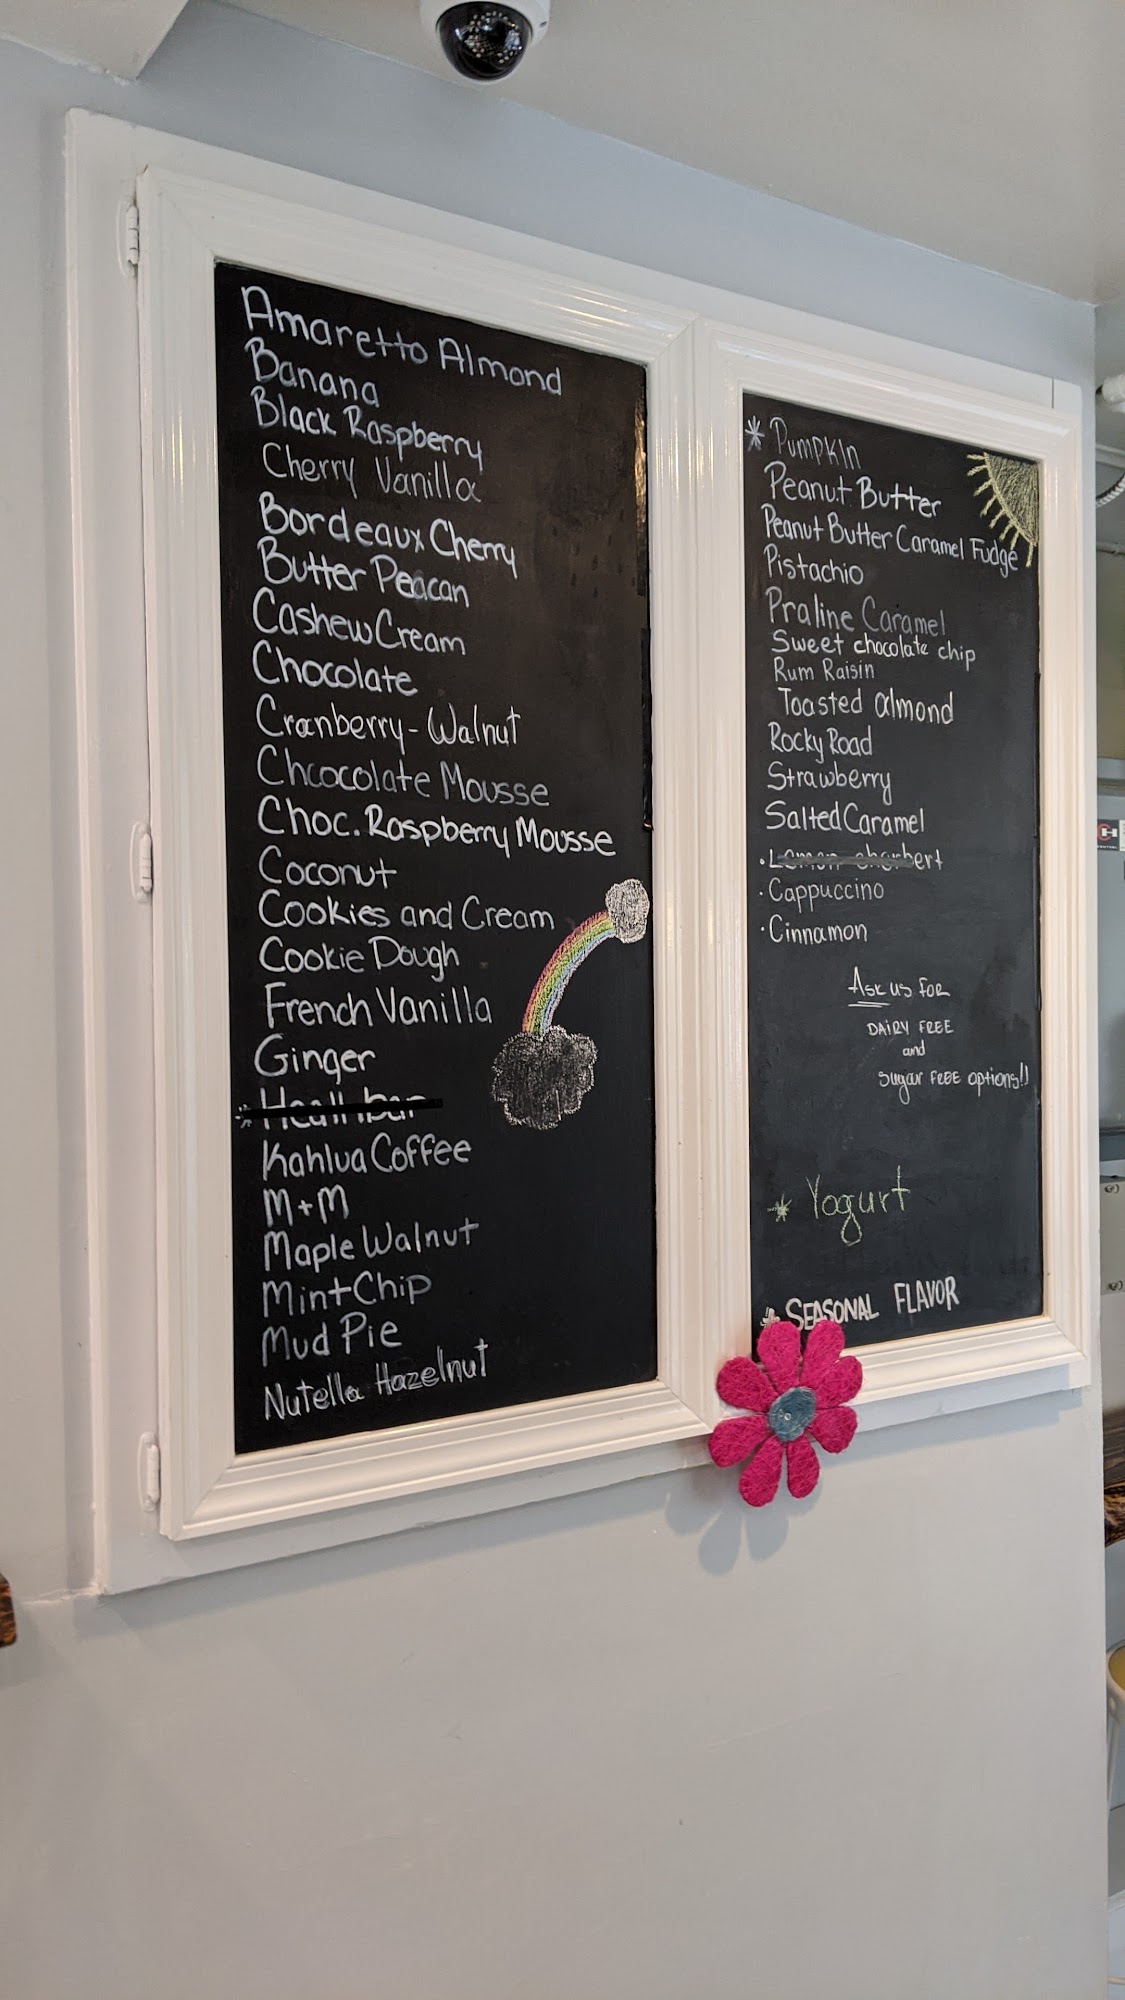 Amaretto Almond
Banana
Black Raspberry
Cherry Vanilla
Bordeaux Cherry
Butter Peacan
Cashew Cream
Chocolate
Cranberry-Walnut
Chcocolate Mousse
Choc. Raspberry Mousse
Coconut
Cookies and Cream
Cookie Dough
French Vanilla
Ginger
* Heath bar
Kahlua Coffee
M+M
Maple Walnut
Mint Chip
Mud Pie
Nutella Hazelnut
* Pumpkin
Peanut Butter
Peanut Butter Caramel Fudge
Pistachio
Praline Caramel
Sweet chocolate chip
Rum Raisin
Toasted almond
Rocky Road
Strawberry
Salted Caramel
· Lemon sherbert
· Cappuccino
· Cinnamon
Ask us FOR
DAIRY FREE
and
Sugar FREE options!!
* Yogurt
* SEASONAL FLAVOR